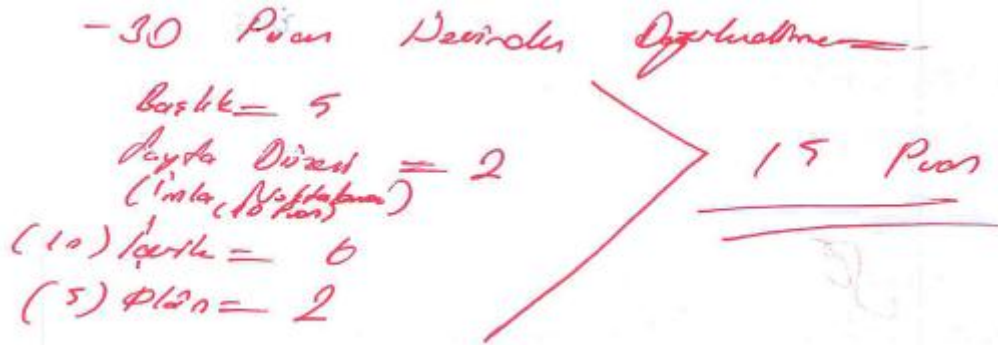 -30 Puan Üzerinden Değerlendirme
Başlık = 5
Sayfa Düzeni = 2
(İmla, Noktalama)
(10 Puan)
(10) İçerik = 6
(5) Plân = 2
15 Puan